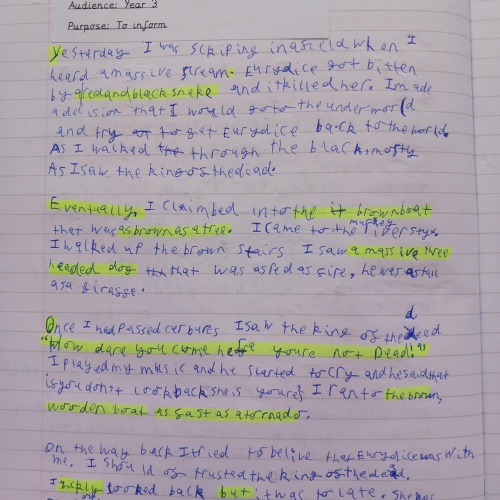 Audience: Year 3
Purpose: To inform
Yesterday I was skiping in a sield when I
heard a massive scream. Eurydice got bitten
by a red and black snake and it killed her. I made
a dcision that I would go to the underworld
and try to get Eurydice back to the world.
As I walked through the black, mosty
As I saw the king of the dead.
Eventually, I claimbed into the brown boat
that was as brown as a tree. I came to the murkey river styx.
I walked up the brown stairs I saw a massive three
headed dog that was as red as fire, he was as tall
as a girasse.
Once I had passed cerbures I saw the king of the dead
"How dare you come here youre not Dead!"
I played my music and he started to cry and he said that
is you don't look back she is youre's I ran to the brown,
wooden boat as fast as a tornado.
On the way back I tried to belive that Eurydice was with
me. I should of trusted the king of the dead.
I quickly looked back but it was to late. She